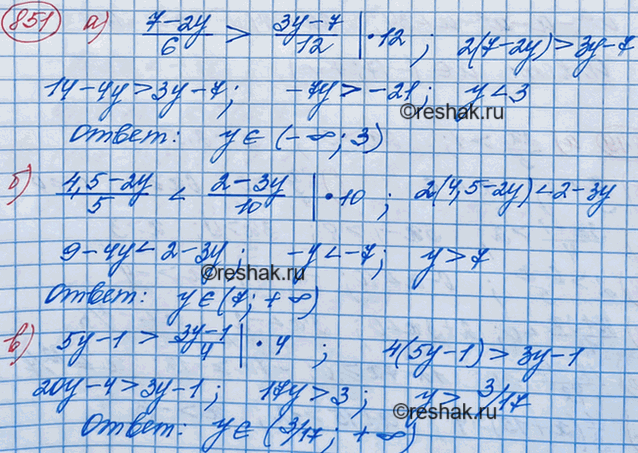 851 а) (7-2y)/6 > (3y-7)/12 | •12 ; 2(7-2y)>3y-7
14-4y>3y-7; -7y>-21; y<3
©reshak.ru
Ответ: y∈(-∞; 3)
б) (4,5-2y)/5 < (2-3y)/10 | •10 ; 2(4,5-2y)<2-3y
9-4y<2-3y; -y<-7; y>7
©reshak.ru
Ответ: y∈(7; +∞)
в) 5y-1 > (3y-1)/4 | •4 ; 4(5y-1)>3y-1
20y-4>3y-1; 17y>3; y>3/17
©reshak.ru
Ответ: y∈(3/17; +∞)